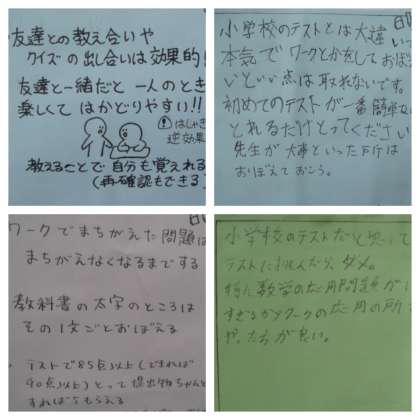 友達との教え合いや
クイズの出し合いは効果的!
友達と一緒だと一人のとき
楽しくてはかどりやすい!!
! はしゃぎ
逆効果
教えることで自分も覚えれる
(再確認もできる
小学校のテストとは大違い
本気でワークとかをしておぼ
いといい点は取れないです。
初めてのテストが一番簡単な
とれるだけとってください
先生が大事といった所は
おぼえておこう。
ワークでまちがえた問題は
まちがえなくなるまでする
教科書の太字のところは
その1文ごとおぼえる
テストで85点以上(できれば
90点以上)とって提出物ちゃんと
すれば5もらえる
小学校のテストだと思って
テストにいどんだら、ダメ。
特に数学の応用問題が
すぎるからワークの応用の所
や、た方が良い。